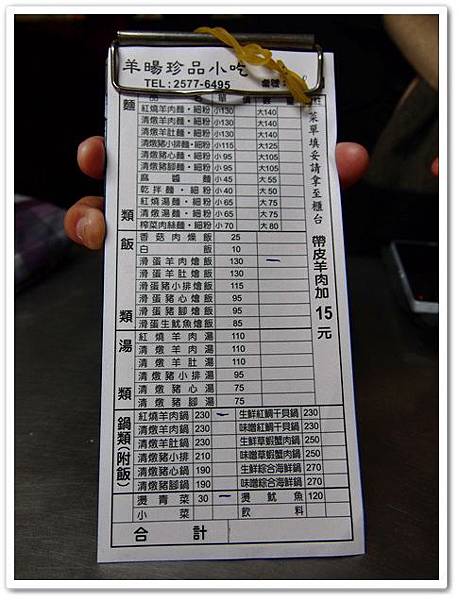 羊暘珍品小吃
TEL:2577-6495
桌號
品 名 單 價 容
紅燒羊肉麵·細粉 小130 大140
清燉羊肉麵·細粉 小130 大140
清燉羊肚麵·細粉 小130 大140
清燉豬小排麵·細粉 小115 大125
清燉豬心麵·細粉 小95 大105
清燉豬腳麵·細粉 小95 大105
麻醬麵 小45 大55
乾拌麵·細粉 小40 大50
紅燒湯麵·細粉 小65 大75
清燉湯麵·細粉 小65 大75
榨菜肉絲麵·細粉 小70 大80
麵類
香菇肉燥飯 25
白飯 10
滑蛋羊肉燴飯 130
滑蛋羊肚燴飯 130
滑蛋豬小排燴飯 115
滑蛋豬心燴飯 95
滑蛋豬腳燴飯 95
滑蛋生魷魚燴飯 85
飯類
紅燒羊肉湯 110
清燉羊肉湯 110
清燉羊肚湯 110
清燉豬小排湯 95
清燉豬心湯 75
清燉豬腳湯 75
湯類
紅燒羊肉鍋 230 生鮮紅鯛干貝鍋 230
清燉羊肉鍋 230 味噌紅鯛干貝鍋 230
清燉羊肚鍋 230 生鮮草蝦蟹肉鍋 250
清燉豬小排 210 味噌草蝦蟹肉鍋 250
清燉豬心鍋 190 生鮮綜合海鮮鍋 270
清燉豬腳鍋 190 味噌綜合海鮮鍋 270
鍋類(附飯)
燙青菜 30 燙魷魚 120
小菜 飲料
合計
菜單填妥請拿至櫃台
帶皮羊肉加15元